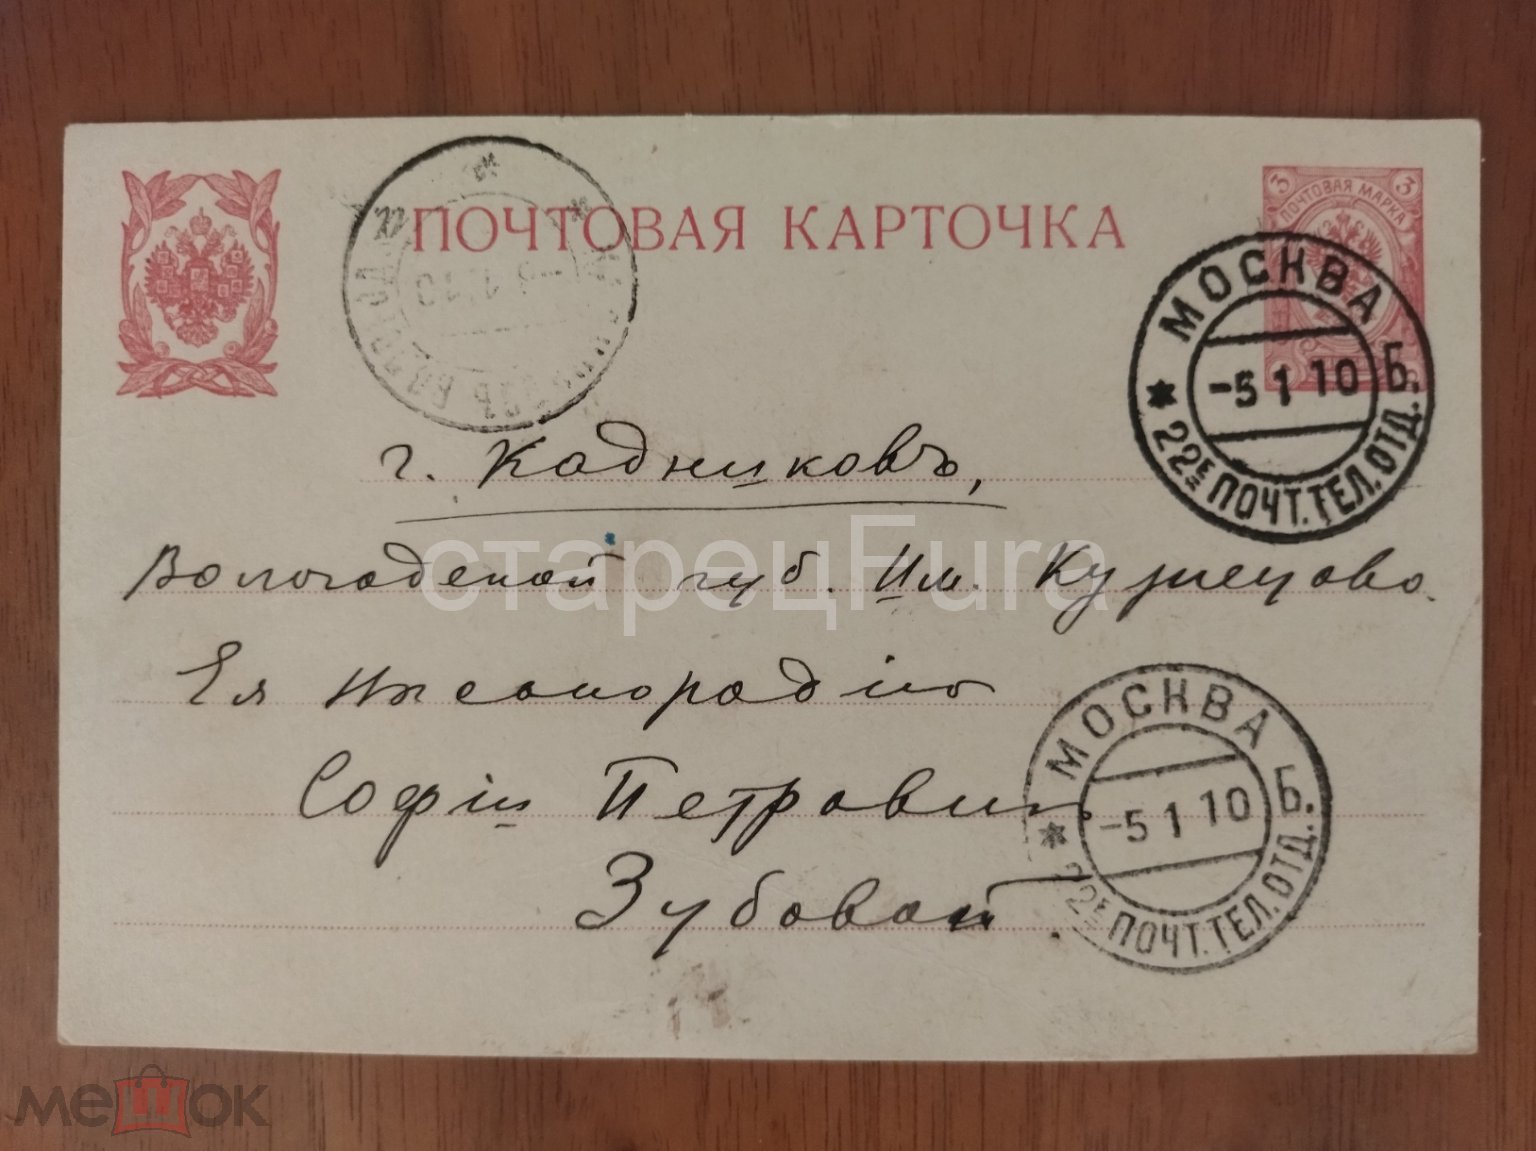 ПОЧТОВАЯ КАРТОЧКА
3 ПОЧТОВАЯ МАРКА 3
МОСКВА Б.
-5 1 10
* 22Е ПОЧТ. ТЕЛ. ОТД.
г. Кадниковъ,
Вологодской губ. Им. Кузнецово.
Ея
Софіи Петровнѣ
Зубовой
МОСКВА Б.
-5 1 10
* 22Е ПОЧТ. ТЕЛ. ОТД.
старецFura
мешок